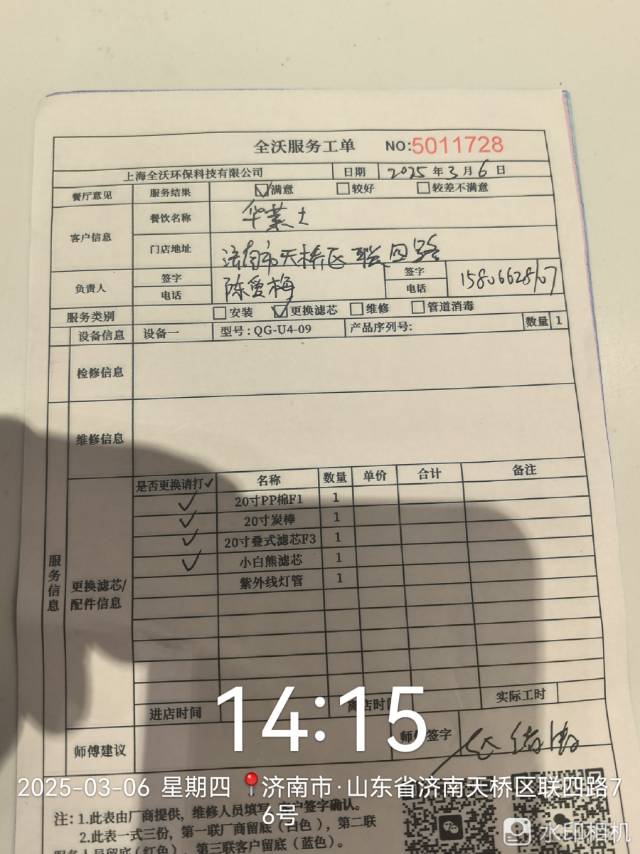 全沃服务工单 NO:5011728
上海全沃环保科技有限公司 日期 2025年3月6日
餐厅意见 服务结果 ☑满意 □较好 □较差不满意
客户信息 餐饮名称 华莱士
门店地址 济南市天桥区联四路
负责人 签字 陈爱梅 签字
电话 电话
服务类别 □安装 ☑更换滤芯 □维修 □管道消毒
设备信息 设备一 型号:QG-U4-09 产品序列号: 数量 1
检修信息
维修信息
服务信息
更换滤芯/配件信息
是否更换请打✓ 名称 数量 单价 合计 备注
✓ 20寸PP棉F1 1
✓ 20寸炭棒 1
✓ 20寸叠式滤芯F3 1
✓ 小白熊滤芯 1
紫外线灯管 1
进店时间 离店时间 实际工时
师傅建议 师傅签字
14:15
2025-03-06 星期四 济南市·山东省济南天桥区联四路7
6号
注: 1.此表由厂商提供, 维修人员填写, 客户签字确认。
2.此表一式三份, 第一联厂商留底(白色), 第二联
服务人员留底(红色), 第三联客户留底(蓝色)。
水印相机